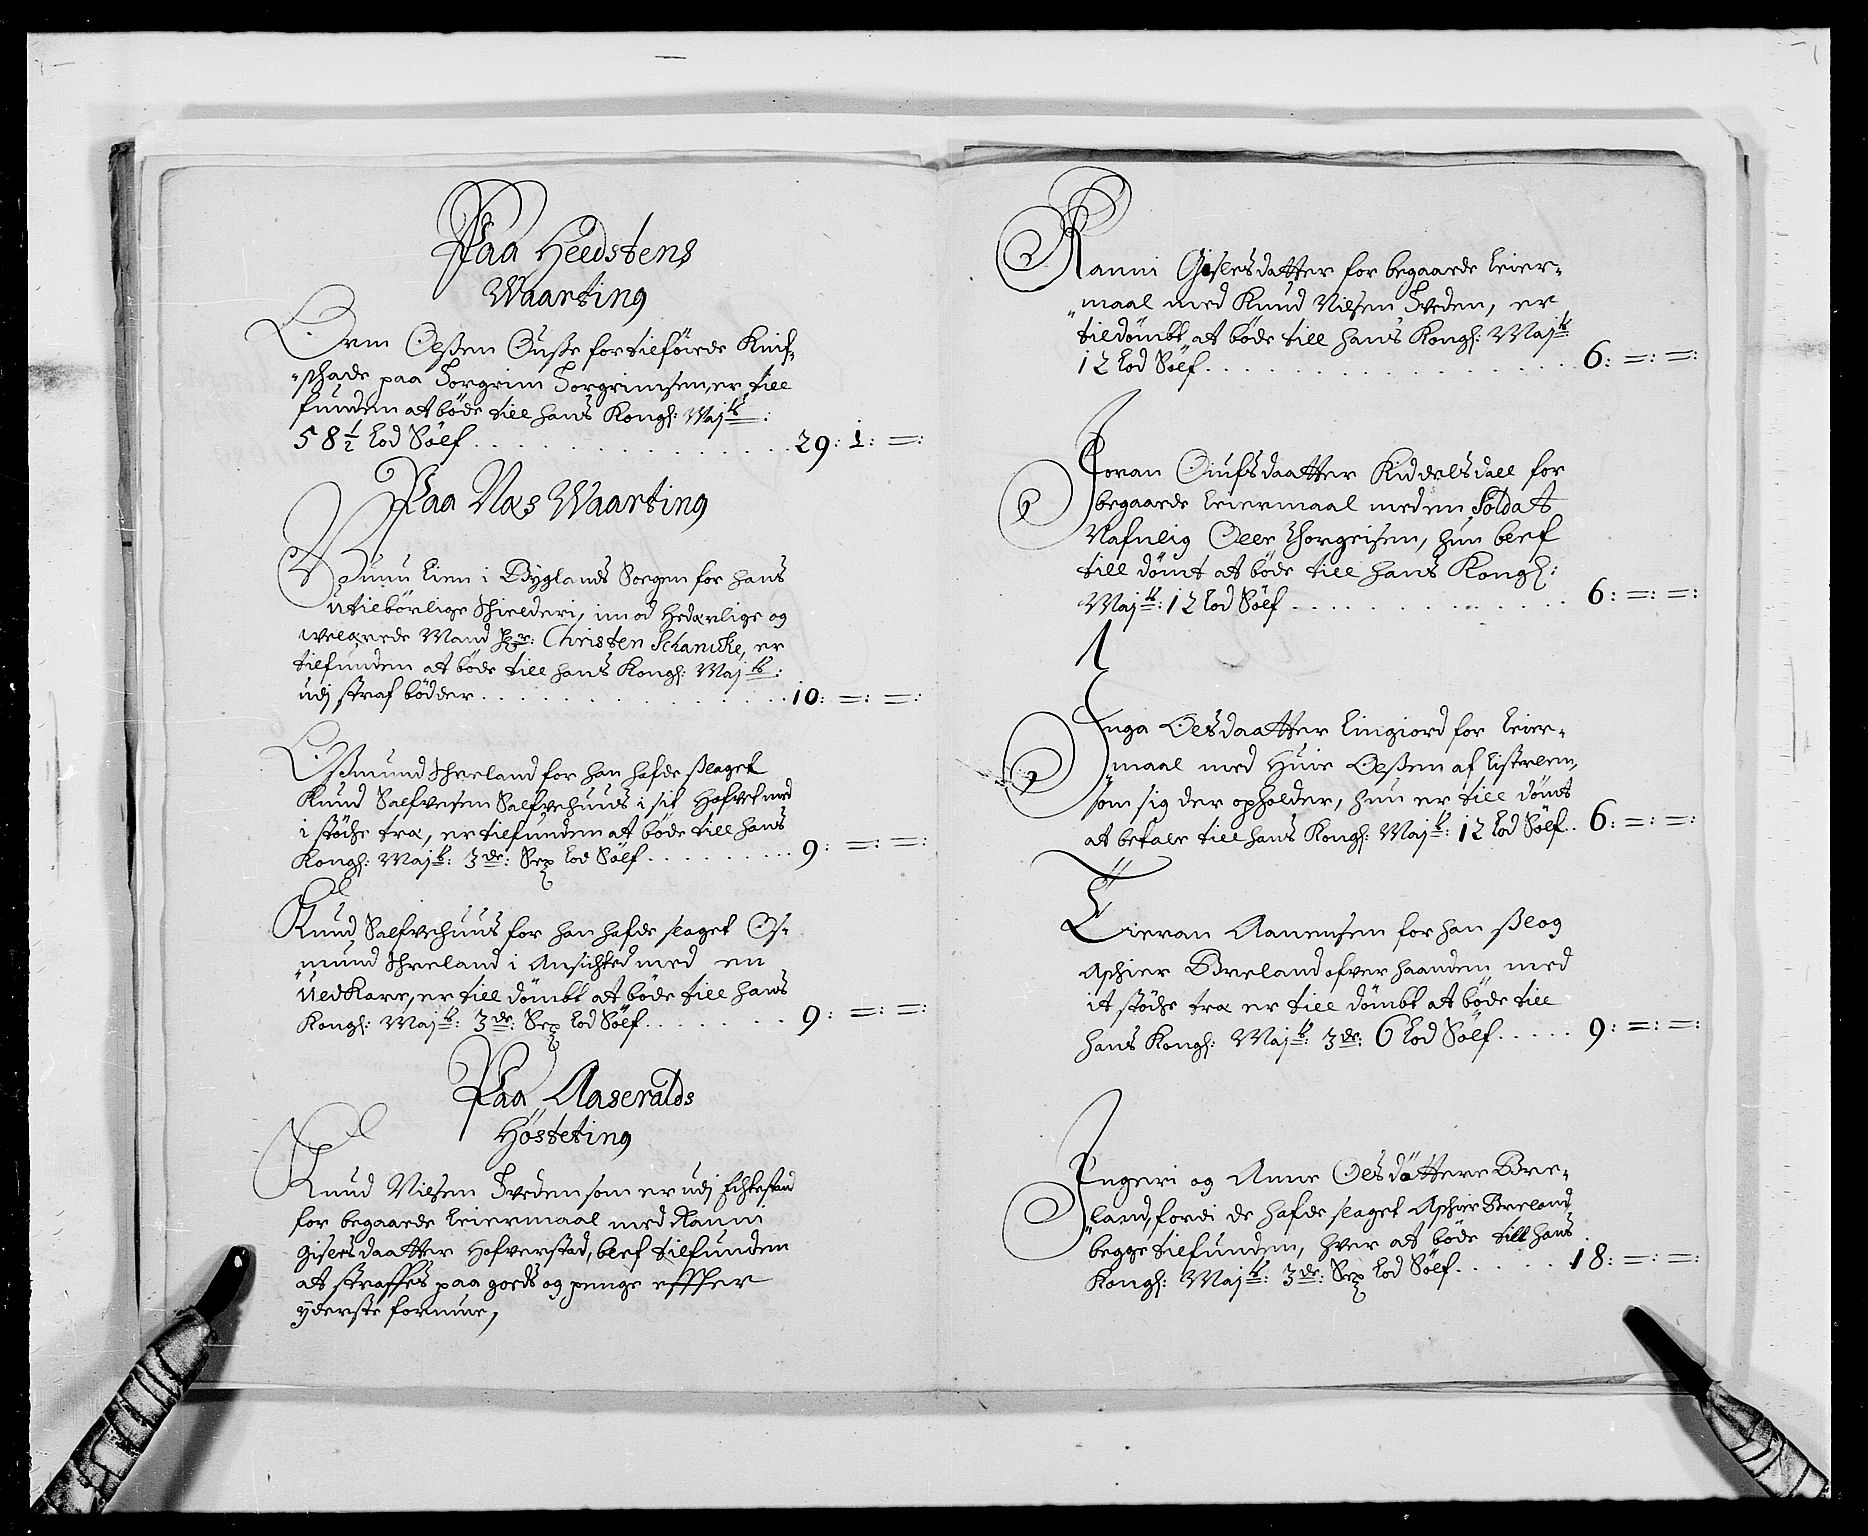 Paa Heedstens
Waarting
Orm Olßen Ouße for tilföiede Knif-
schade paa Torgrim Torgrimsen, er till
funden at böde till hans Kongl: Majts:
58½ Lod Sölf . . . . . 29: 1: =:
Paa Næs Waarting
Lien i Byglands Sorgen for hans
utilbörlige Skielderi, imod Hederlige og
welærede Mand Hr: Christen Schancke, er
tilfunden at böde till hans Kongl: Majts:
udj straf bödder . . . . . 10: =: =:
Oßmund Threland for han hafde ßlaget
Knud Salfvesen Salfvehuus i sit Hofvet med
i stöche træ, er tilfunden at böde till hans
Kongl: Majts: 3de: Sex Lod Sölf . . . . . 9: =: =:
Knud Salfvehuus for han hafde slaget Os-
mund Threland i Ansichted med en
Uedkare, er till dömbt at böde till hans
Kongl: Majts: 3de: Sex Lod Sölf . . . . . 9: =: =:
Paa Aaseralds
Hösteting
Knud Nilsen Sveden som er udj Echtestand
for begaarde Leiermaal med Ranni
Gislesdaatter Hofverstad, blef tilfunden
at straffes paa goeds og penge effther
yderste formue,
Ranni Gislesdatter for begaarde Leier-
maal med Knud Nilsen Sveden, er
tildömbt at böde till hans Kongl: Majts
12 Lod Sölf . . . . . 6: =: =:
Joran Oiufsdaatter Kiddelsdall for
begaarde Leiermaal med en Soldat
Nafnlig Olle Thorgeisen, hun blef
till dömt at böde till hans Kongl:
Majts: 12 Lod Sölf . . . . . 6: =: =:
Inga Olsdaatter Lingiord for Leier-
maal med Olßen af
som sig der opholder, hun er till dömt
at betale till hans Kongl: Majts: 12 Lod Sölf . . 6: =: =:
Tieran Aanensen for han ßlog
Aschier Breland ofver haanden med
it stöche træ er till dömbt at böde till
hans Kongl: Majts: 3de: 6 Lod Sölf . . . . . 9: =: =:
Ingeri og Anne Olsdöttere Bre-
land, fordi de hafde slaget Aschier Breland
begge tilfunden, hver at böde till hans
Kongl: Majts: 3de: Sex Lod Sölf . . . . . 18: =: =: